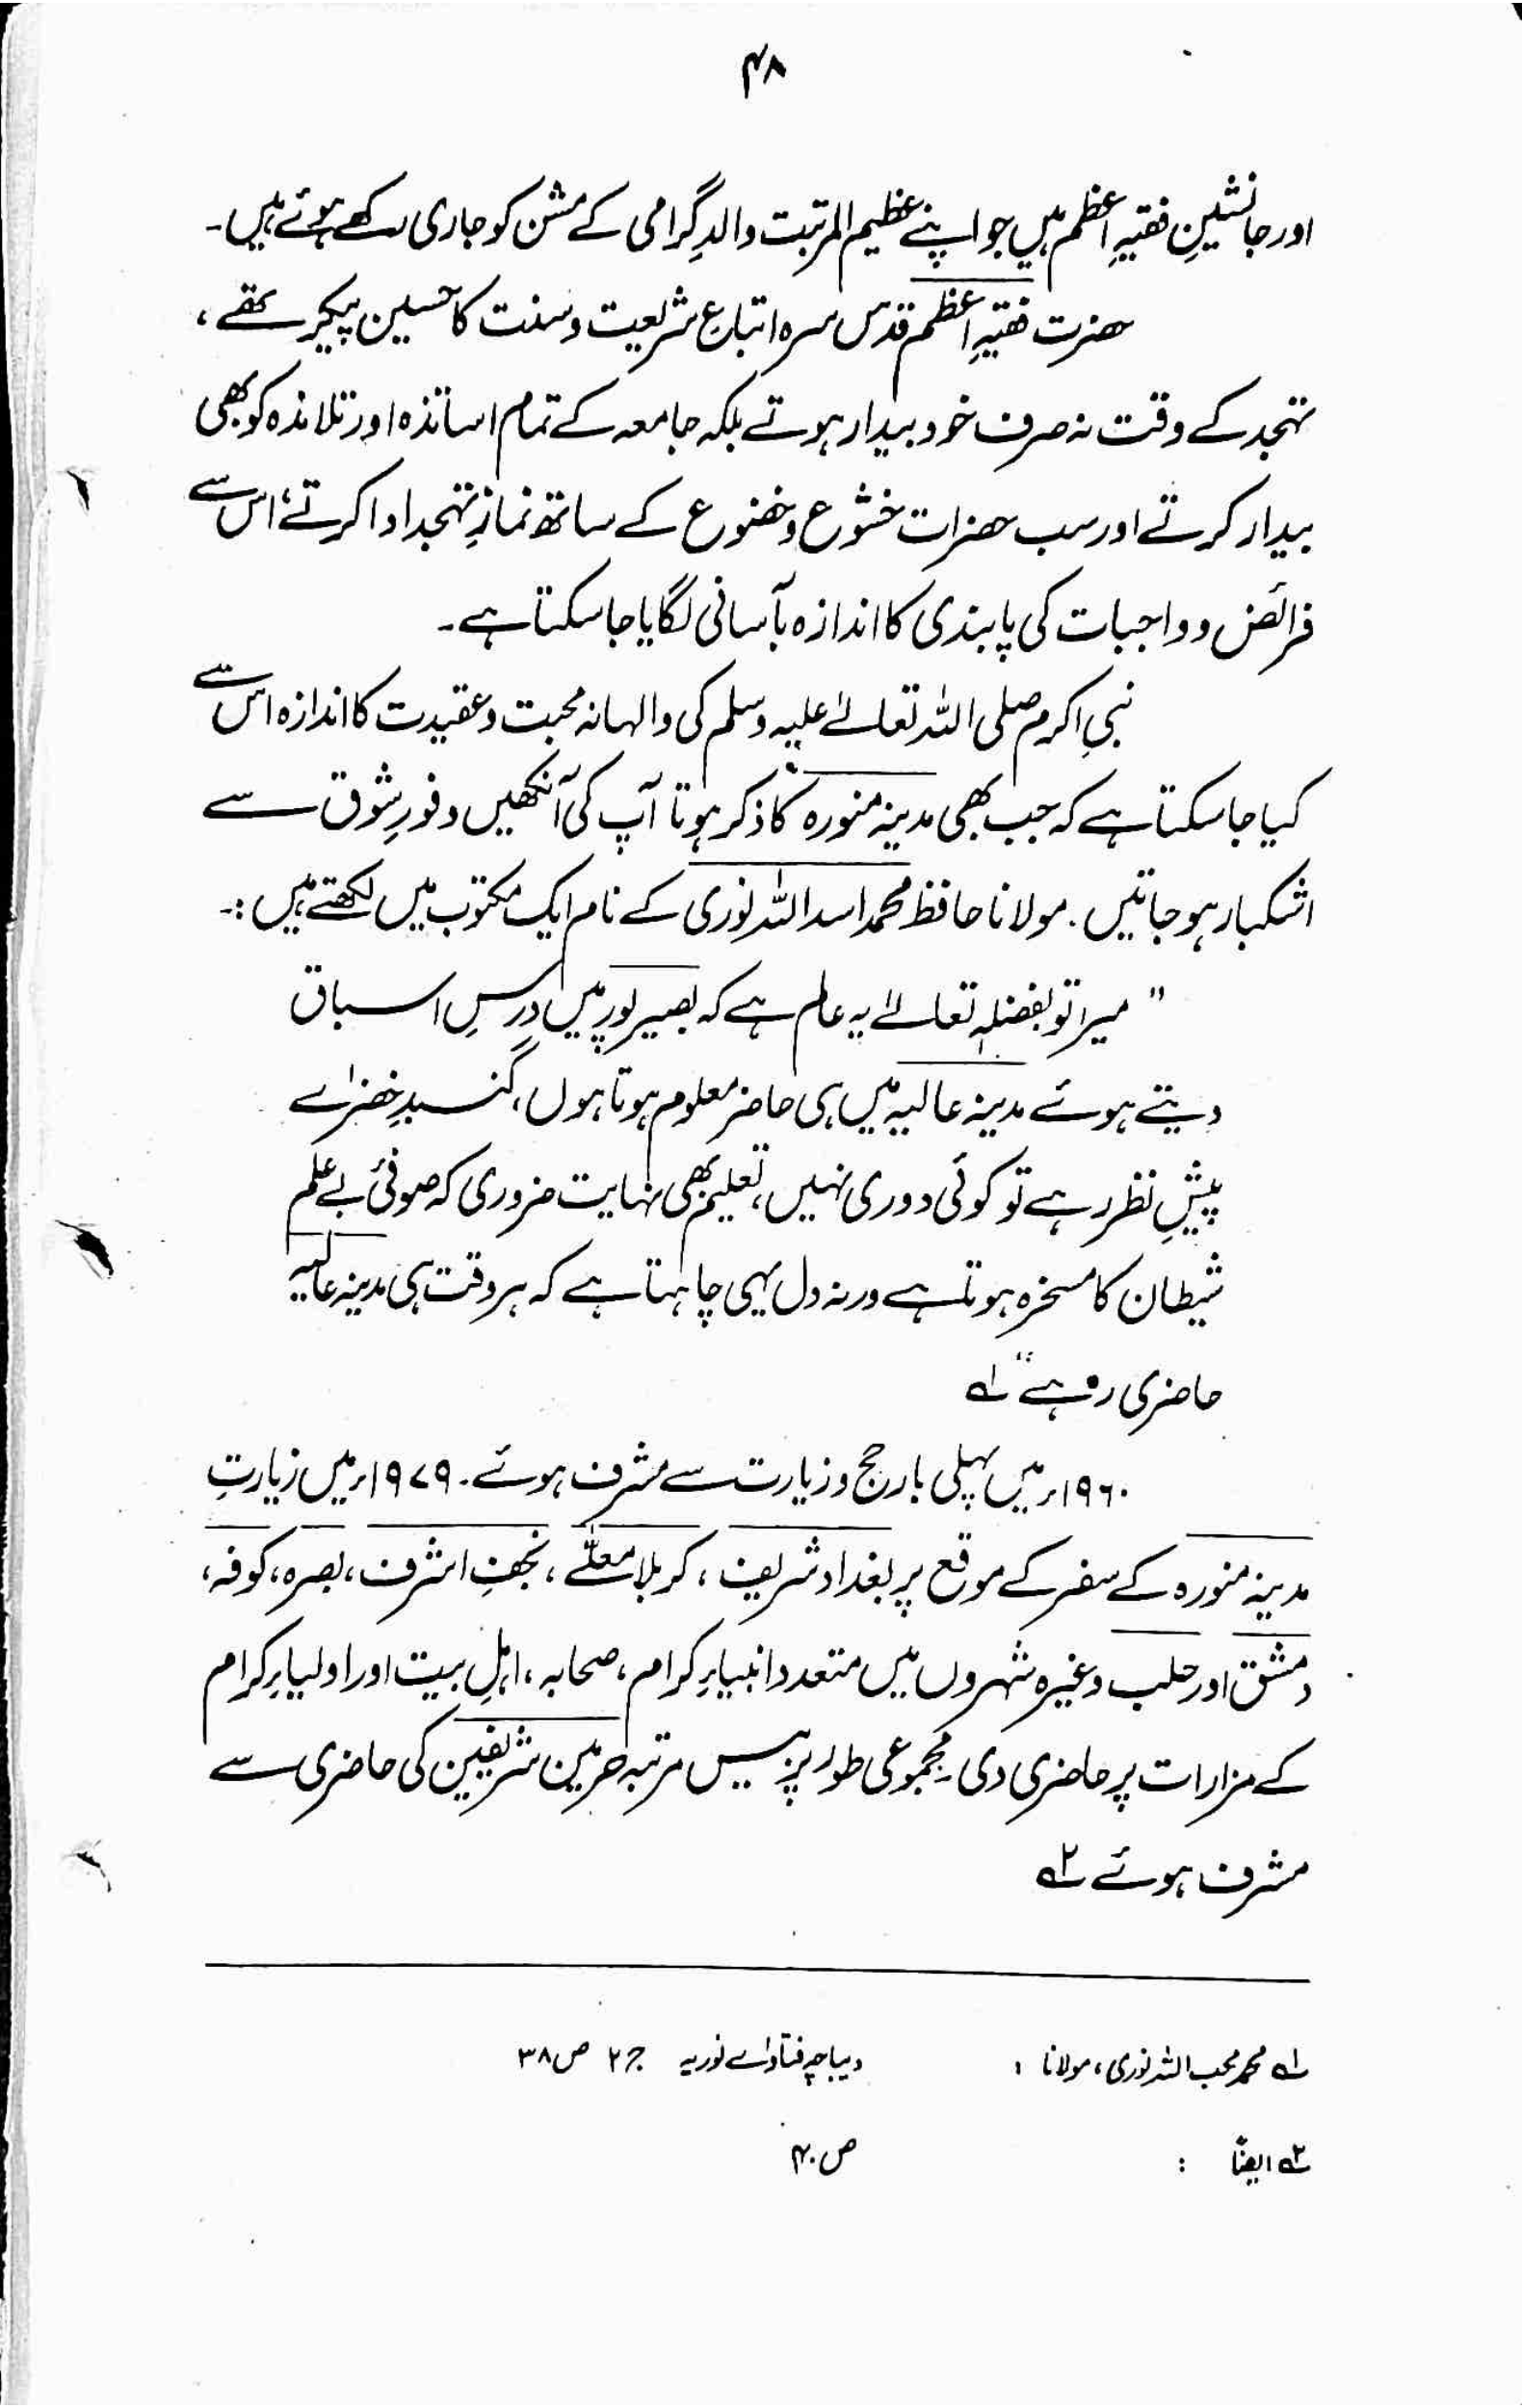 ۴۸
اور جانشینِ فقیہِ اعظم ہیں جو اپنے عظیم المرتبت والدِ گرامی کے مشن کو جاری رکھے ہوئے ہیں۔
حضرت فقیہِ اعظم قدس سرہ اتباعِ شریعت و سنت کا حسین پیکر تھے،
تہجد کے وقت نہ صرف خود بیدار ہوتے بلکہ جامعہ کے تمام اساتذہ اور تلامذہ کو بھی
بیدار کرتے اور سب حضرات خشوع و خضوع کے ساتھ نمازِ تہجد ادا کرتے، اس سے
فرائض و واجبات کی پابندی کا اندازہ بآسانی لگایا جاسکتا ہے۔
نبیِ اکرم صلی اللہ تعالےٰ علیہ وسلم کی والہانہ محبت و عقیدت کا اندازہ اس سے
کیا جاسکتا ہے کہ جب بھی مدینہ منورہ کا ذکر ہوتا آپ کی آنکھیں وفورِ شوق سے
اشکبار ہو جاتیں. مولانا حافظ محمد اسد اللہ نوری کے نام ایک مکتوب میں لکھتے ہیں :۔
" میرا تو بفضلہٖ تعالےٰ یہ عالم ہے کہ بصیرپور میں درسِ اسباق
دیتے ہوئے مدینہ عالیہ میں ہی حاضر معلوم ہوتا ہوں، گنبدِ خضرٰے
پیشِ نظر رہے تو کوئی دوری نہیں، تعلیم بھی نہایت ضروری کہ صوفئ بے علم
شیطان کا مسخرہ ہوتا ہے ورنہ دل یہی چاہتا ہے کہ ہر وقت ہی مدینہ عالیہ
حاضری رہے " ۱ے
۱۹۶۰ء میں پہلی بار حج و زیارت سے مشرف ہوئے۔ ۱۹۷۹ء میں زیارتِ
مدینہ منورہ کے سفر کے موقع پر بغداد شریف، کربلا معلّٰے، نجفِ اشرف، بصرہ، کوفہ،
دمشق اور حلب وغیرہ شہروں میں متعدد انبیاءِ کرام، صحابہ، اہلِ بیت اور اولیاءِ کرام
کے مزارات پر حاضری دی۔ مجموعی طور پر بیس مرتبہ حرمین شریفین کی حاضری سے
مشرف ہوئے ۲ے
۱ے محمد محب اللہ نوری، مولانا : دیباچہ فتاوٰے نوریہ ج ۲ ص ۳۸
۲ے ایضًا : ص ۴۰